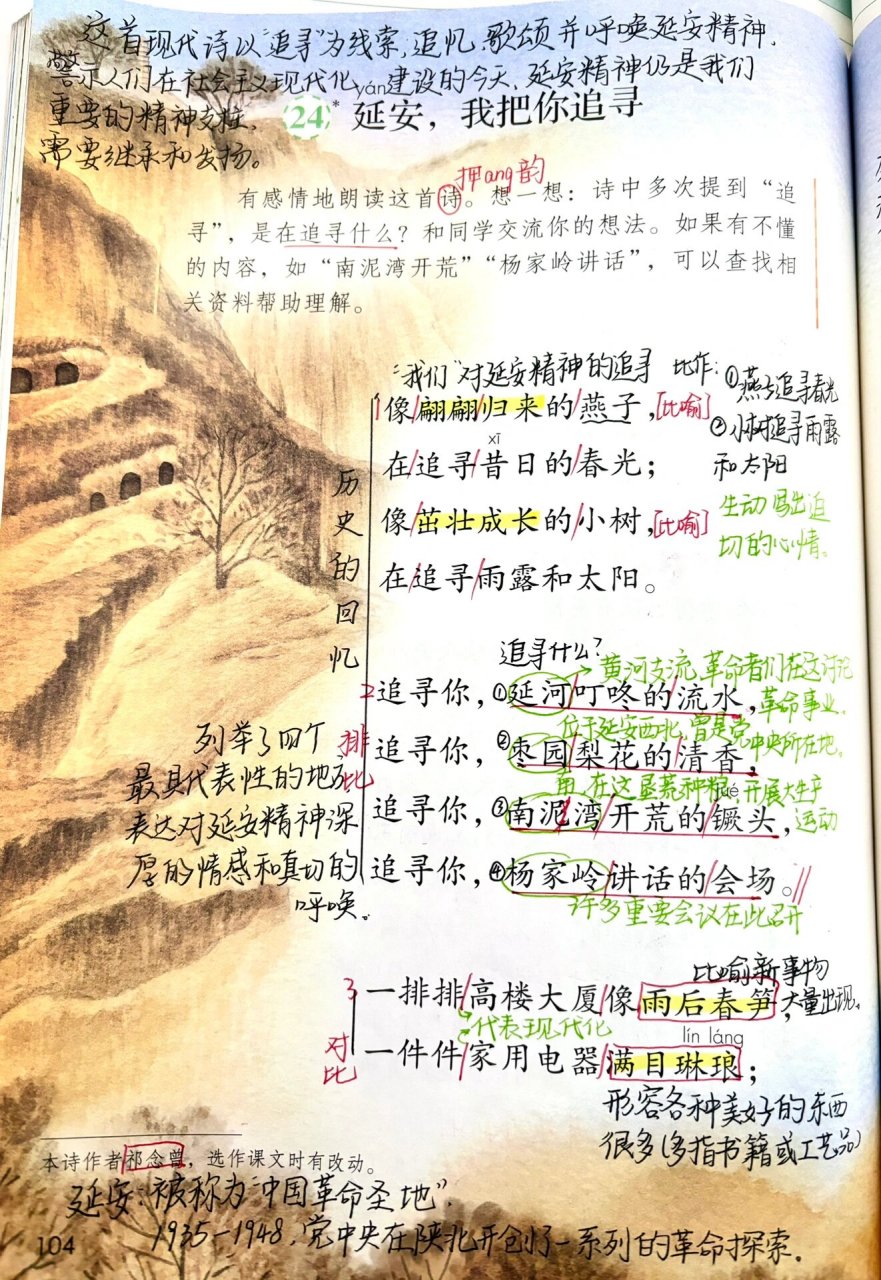 这首现代诗以“追寻”为线索,追忆、歌颂并呼唤延安精神,
警示人们在社会主义现代化建设的今天,延安精神仍是我们
重要的精神支柱,
需要继承和发扬。
yán
24* 延安，我把你追寻
押ang韵
有感情地朗读这首诗。想一想：诗中多次提到“追
寻”，是在追寻什么？和同学交流你的想法。如果有不懂
的内容，如“南泥湾开荒”“杨家岭讲话”，可以查找相
关资料帮助理解。
“我们”对延安精神的追寻 比作:①燕子追寻春光
②小树追寻雨露
和太阳
生动写出迫
切的心情。
历史的回忆
1像翩翩归来的燕子，[比喻]
xī
在追寻昔日的春光；
像茁壮成长的小树，[比喻]
在追寻雨露和太阳。
追寻什么?
黄河支流,革命者们在这讨论
革命事业.
2追寻你，①延河叮咚的流水，
位于延安西北,曾是党
中央所在地。
追寻你，②枣园梨花的清香，
在这垦荒种粮,开展大生产
运动
jué
追寻你，③南泥湾开荒的镢头，
追寻你，④杨家岭讲话的会场。
许多重要会议在此召开
排比
列举了四个
最具代表性的地方
表达对延安精神深
厚的情感和真切的
呼唤.
比喻新事物
大量出现。
3一排排高楼大厦像雨后春笋，
代表现代化
lín láng
一件件家用电器满目琳琅；
对比
形容各种美好的东西
很多(多指书籍或工艺品)
本诗作者祁念曾，选作课文时有改动。
延安:被称为“中国革命圣地”
1935-1948,党中央在陕北开创了一系列的革命探索.
104